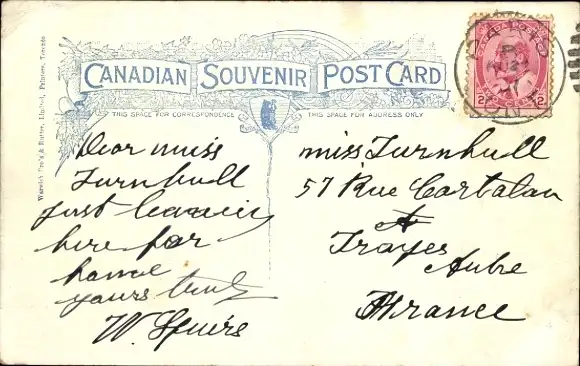 CANADIAN SOUVENIR POST CARD
THIS SPACE FOR CORRESPONDENCE
THIS SPACE FOR ADDRESS ONLY
Warwick Bro's & Rutter, Limited, Printers, Toronto
CANADA POSTAGE
2 CENTS 2
Dear miss
Turnbull
just leaving
here for
home
yours truly
W. Spiers
miss Turnbull
57 Rue Cortalau
Troyes
Aube
France